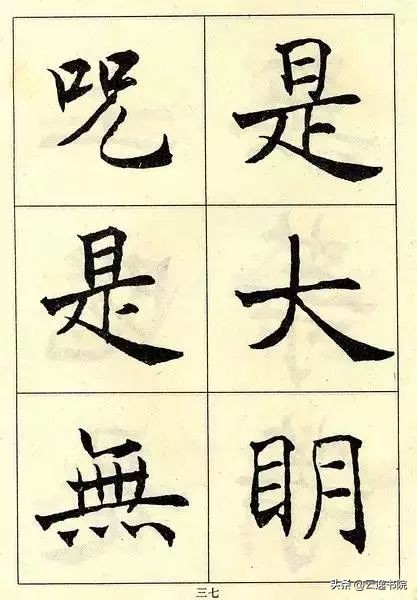 是大眀
呪是無
三七
头条@云逸书院